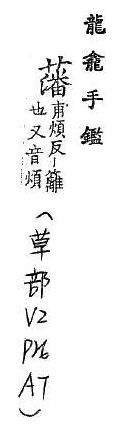 龍龕手鑑
藩甫煩反丨籬
也又音煩
(草部
V2
P26
A7)